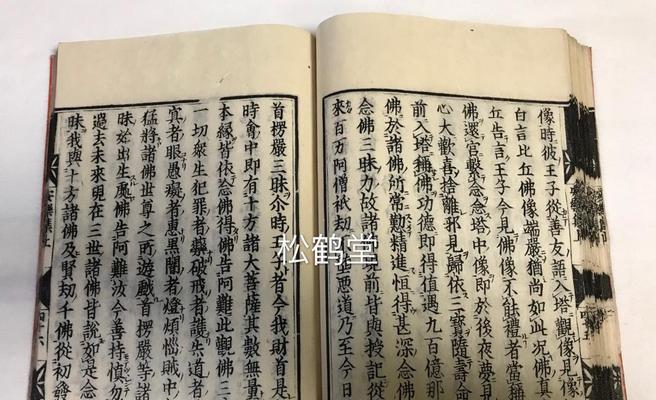 像時彼王子從善友語入塔觀像見像
白言比丘佛像端嚴猶尚如此況佛真
丘告言王子今見佛像不能禮者當稱
佛還宮繫念念塔中像即於後夜夢見
心大歡喜捨離邪見歸依三寶隨壽命
前入塔稱佛功德即得值遇九百億那
佛於諸佛所常勤精進恒得甚深念佛
念佛三昧力故諸佛現前皆與授記從
來百万阿僧祇劫墮惡道乃至今日
首楞嚴三昧尒時王子者今我財首是
時會中即有十方諸大菩薩其數無量
本緣皆依念佛得佛告阿難此觀佛三
一切衆生犯罪者藥破戒者護失道者
冥者眼愚癡者惠黑闇者燈煩惱賊中
猛將諸佛世尊之所遊戲首楞嚴等諸
昧始出生處佛告阿難汝今善持慎勿
過去未來現在三世諸佛皆說如是念
昧我與十方諸佛及賢劫千佛從初發
安樂集上
四十六
松鹤堂